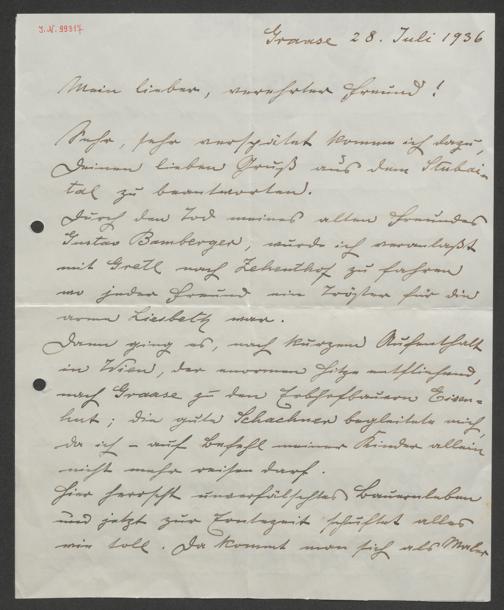 J.N. 99317
Graase 28. Juli 1936
Mein lieber, verehrter Freund!
Sehr, sehr verspätet komme ich dazu,
Deinen lieben Gruß aus dem Stubai-
tal zu beantworten.
Durch den Tod meines alten Freundes
Gustav Bamberger, wurde ich veranlaßt
mit Gretl nach Zehenthof zu fahren
wo jeder Freund ein Tröster für die
arme Liesbeth war.
Dann ging es, nach kurzem Aufenthalt
in Wien, der enormen Hitze entfliehend,
nach Graase zu den Erbhofbauern Eisen-
hut; die gute Schachner begleitete mich,
da ich – auf Befehl meiner Kinder allein
nicht mehr reisen darf.
Hier herrscht unverfälschtes Bauernleben
und jetzt zur Erntezeit schuftet alles
wie toll. Da kommt man sich als Maler